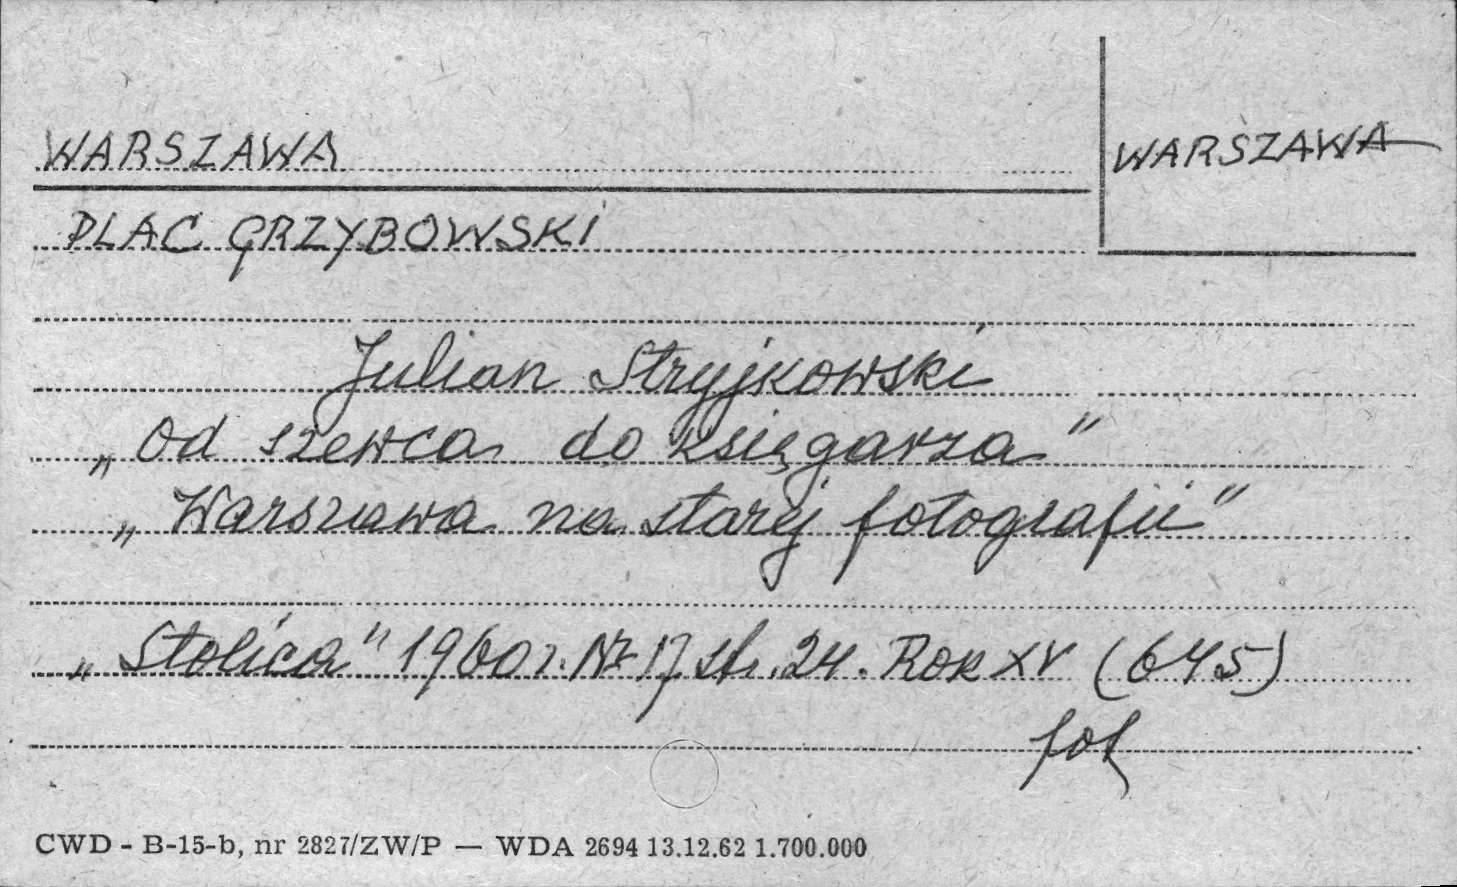 WARSZAWA
WARSZAWA
PLAC GRZYBOWSKI
Julian Stryjkowski
„Od szewca do księgarza"
„Warszawa na starej fotografii"
„Stolica" 1960 r. Nr 17 str. 24. Rok XV (645)
fot
CWD - B-15-b, nr 2827/ZW/P — WDA 2694 13.12.62 1.700.000